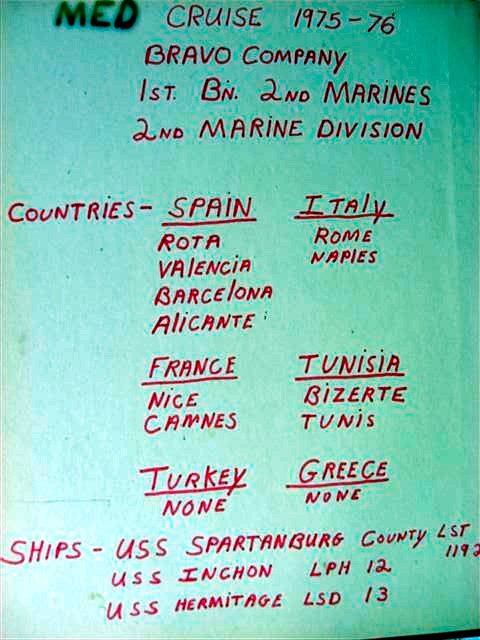 MED CRUISE 1975-76
BRAVO COMPANY
1ST. BN. 2ND MARINES
2ND MARINE DIVISION
COUNTRIES - SPAIN ITALY
ROTA ROME
VALENCIA NAPLES
BARCELONA
ALICANTE
FRANCE TUNISIA
NICE BIZERTE
CANNES TUNIS
TURKEY GREECE
NONE NONE
SHIPS - USS SPARTANBURG COUNTY LST 1192
USS INCHON LPH 12
USS HERMITAGE LSD 13